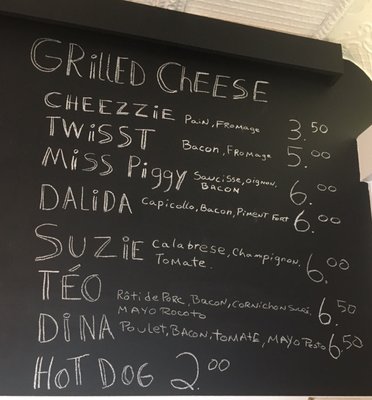 GRILLED CHEESE
CHEEZZIE Pain, Fromage 3.50
TWISST Bacon, Fromage 5.00
Miss Piggy Saucisse, oignon, BACON 6.00
DALIDA Capicollo, Bacon, Piment Fort 6.00
SUZIE Calabrese, Champignon, Tomate 6.00
TÉO Rôti de Porc, Bacon, cornichon sucré, MAYO Rocoto 6.50
DINA Poulet, BACON, TOMATE, MAYO Pesto 6.50
HOT DOG 2.00